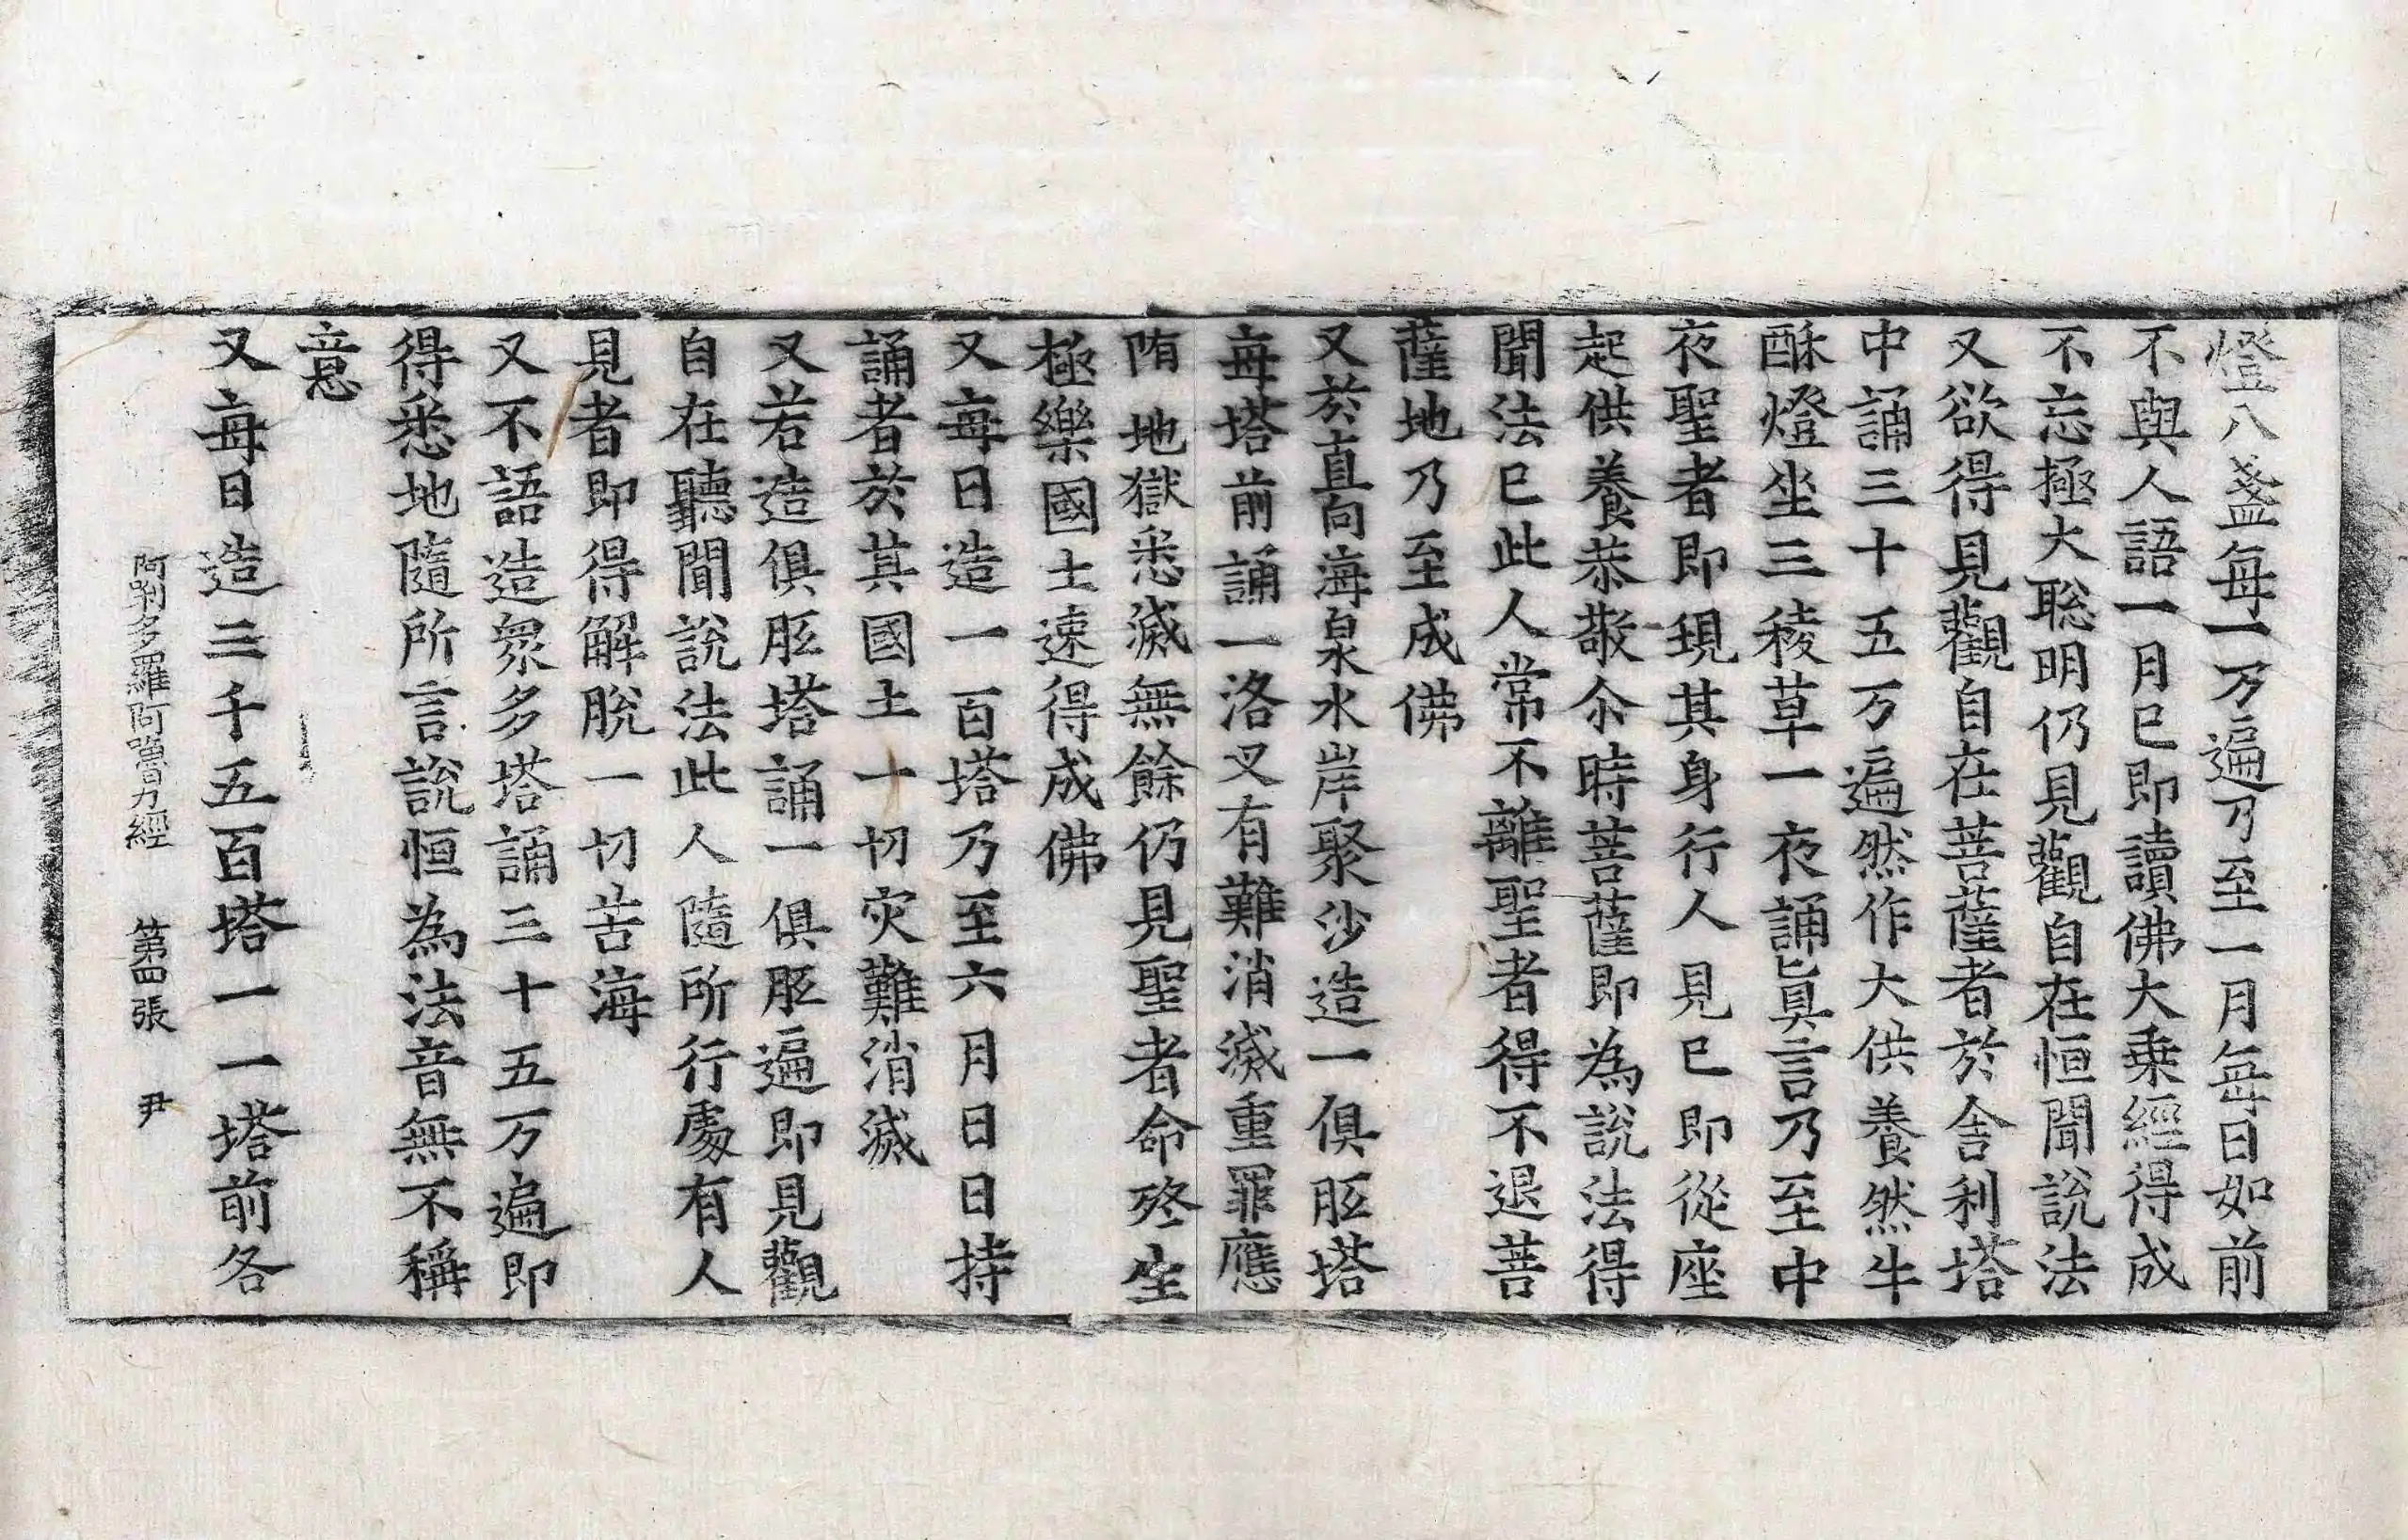 燈八盞每一万遍乃至一月每日如前
不與人語一月已即讀佛大乗經得成
不忘極大聡明仍見觀自在恒聞說法
又欲得見觀自在菩薩者於舎利塔
中誦三十五万遍然作大供養然牛
酥燈坐三稜草一夜誦眞言乃至中
夜聖者即現其身行人見已即從座
起供養恭敬尒時菩薩即為說法得
聞法已此人常不離聖者得不退菩
薩地乃至成佛
又於直向海泉水岸聚沙造一俱胝塔
每塔前誦一洛叉有難消滅重罪應
陏地獄悉滅無餘仍見聖者命終生
極樂國土速得成佛
又每日造一百塔乃至六月日日持
誦者於其國土一切灾難消滅
又若造俱胝塔誦一俱胝遍即見觀
自在聽聞說法此人隨所行處有人
見者即得解脫一切苦海
又不語造衆多塔誦三十五万遍即
得悉地隨所言說恒為法音無不稱
意
又每日造三千五百塔一一塔前各
阿唎多羅阿嚕力經 第四張 尹